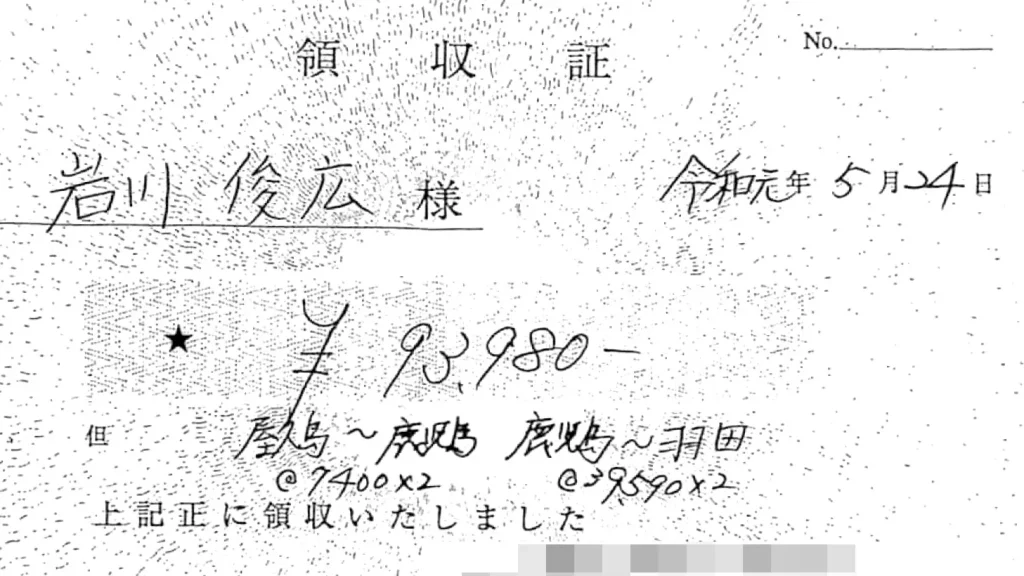 No.
領収証
岩川 俊広 様
令和元年 5月24日
★ ¥93,980-
但 屋久島~鹿児島 鹿児島~羽田
@7400×2 @39,590×2
上記正に領収いたしました